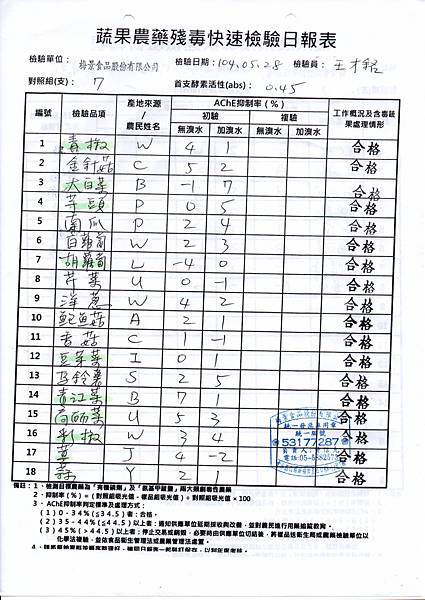 蔬果農藥殘毒快速檢驗日報表
檢驗單位： 梅景食品股份有限公司 檢驗日期：104.05.28 檢驗員： 王才銘
對照組(支)： 7 首支酵素活性(abs)： 0.45
編號 檢驗品項 產地來源/農民姓名 AChE抑制率(%) 工作概況及含毒蔬果處理情形
初驗 複驗
無溴水 加溴水 無溴水 加溴水
1 青椒 W 4 1 合格
2 金針菇 C 5 2 合格
3 大白菜 B -1 7 合格
4 芋頭 P 0 5 合格
5 南瓜 P 2 4 合格
6 白蘿蔔 W 2 3 合格
7 胡蘿蔔 L -4 0 合格
8 芹菜 U 0 -1 合格
9 洋蔥 W 4 2 合格
10 鮑魚菇 A 2 1 合格
11 香菇 C 1 -1 合格
12 豆芽菜 I 0 1 合格
13 馬鈴薯 S 2 5 合格
14 青江菜 B 7 1 合格
15 高麗菜 U 5 3 合格
16 彩椒 W 3 4 合格
17 J 4 -2 合格
18 蒜 Y 2 1 合格
梅景食品股份有限公司
統一發票專用章
統一編號
53177287
電話:05-
備註：1、檢測目標農藥為「有機磷劑」及「氨基甲酸鹽」兩大類劇毒性農藥
2、抑制率(%)=(對照組吸光值-樣品組吸光值)÷對照組吸光值×100
3、AChE抑制率判定標準及處理方式：
(1) 0-34%(≦34.5)者：合格。
(2) 35-44%(≦44.5)以上者：通知供應單位延期採收與改善，並對農民進行用藥追蹤教育。
(3) 45%(＞44.5)以上者：停止交易或銷毀，必要時由供應單位切結後，將樣品送衛生局或農藥檢驗單位以
化學法複驗，並依食品衛生管理法或農藥管理法處置。